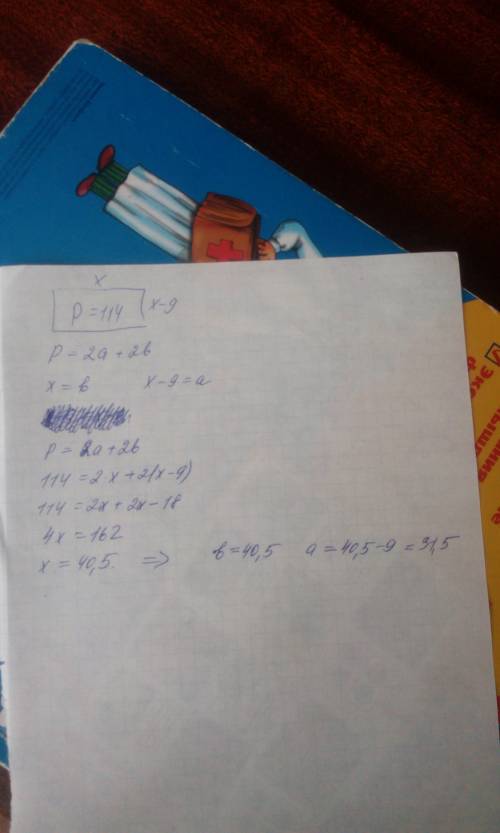 x
P = 114
x-9
P = 2a + 2b
x = b    x-9 = a
P = 2a + 2b
114 = 2·x + 2(x-9)
114 = 2x + 2x - 18
4x = 162
x = 40,5. => b = 40,5    a = 40,5 - 9 = 31,5